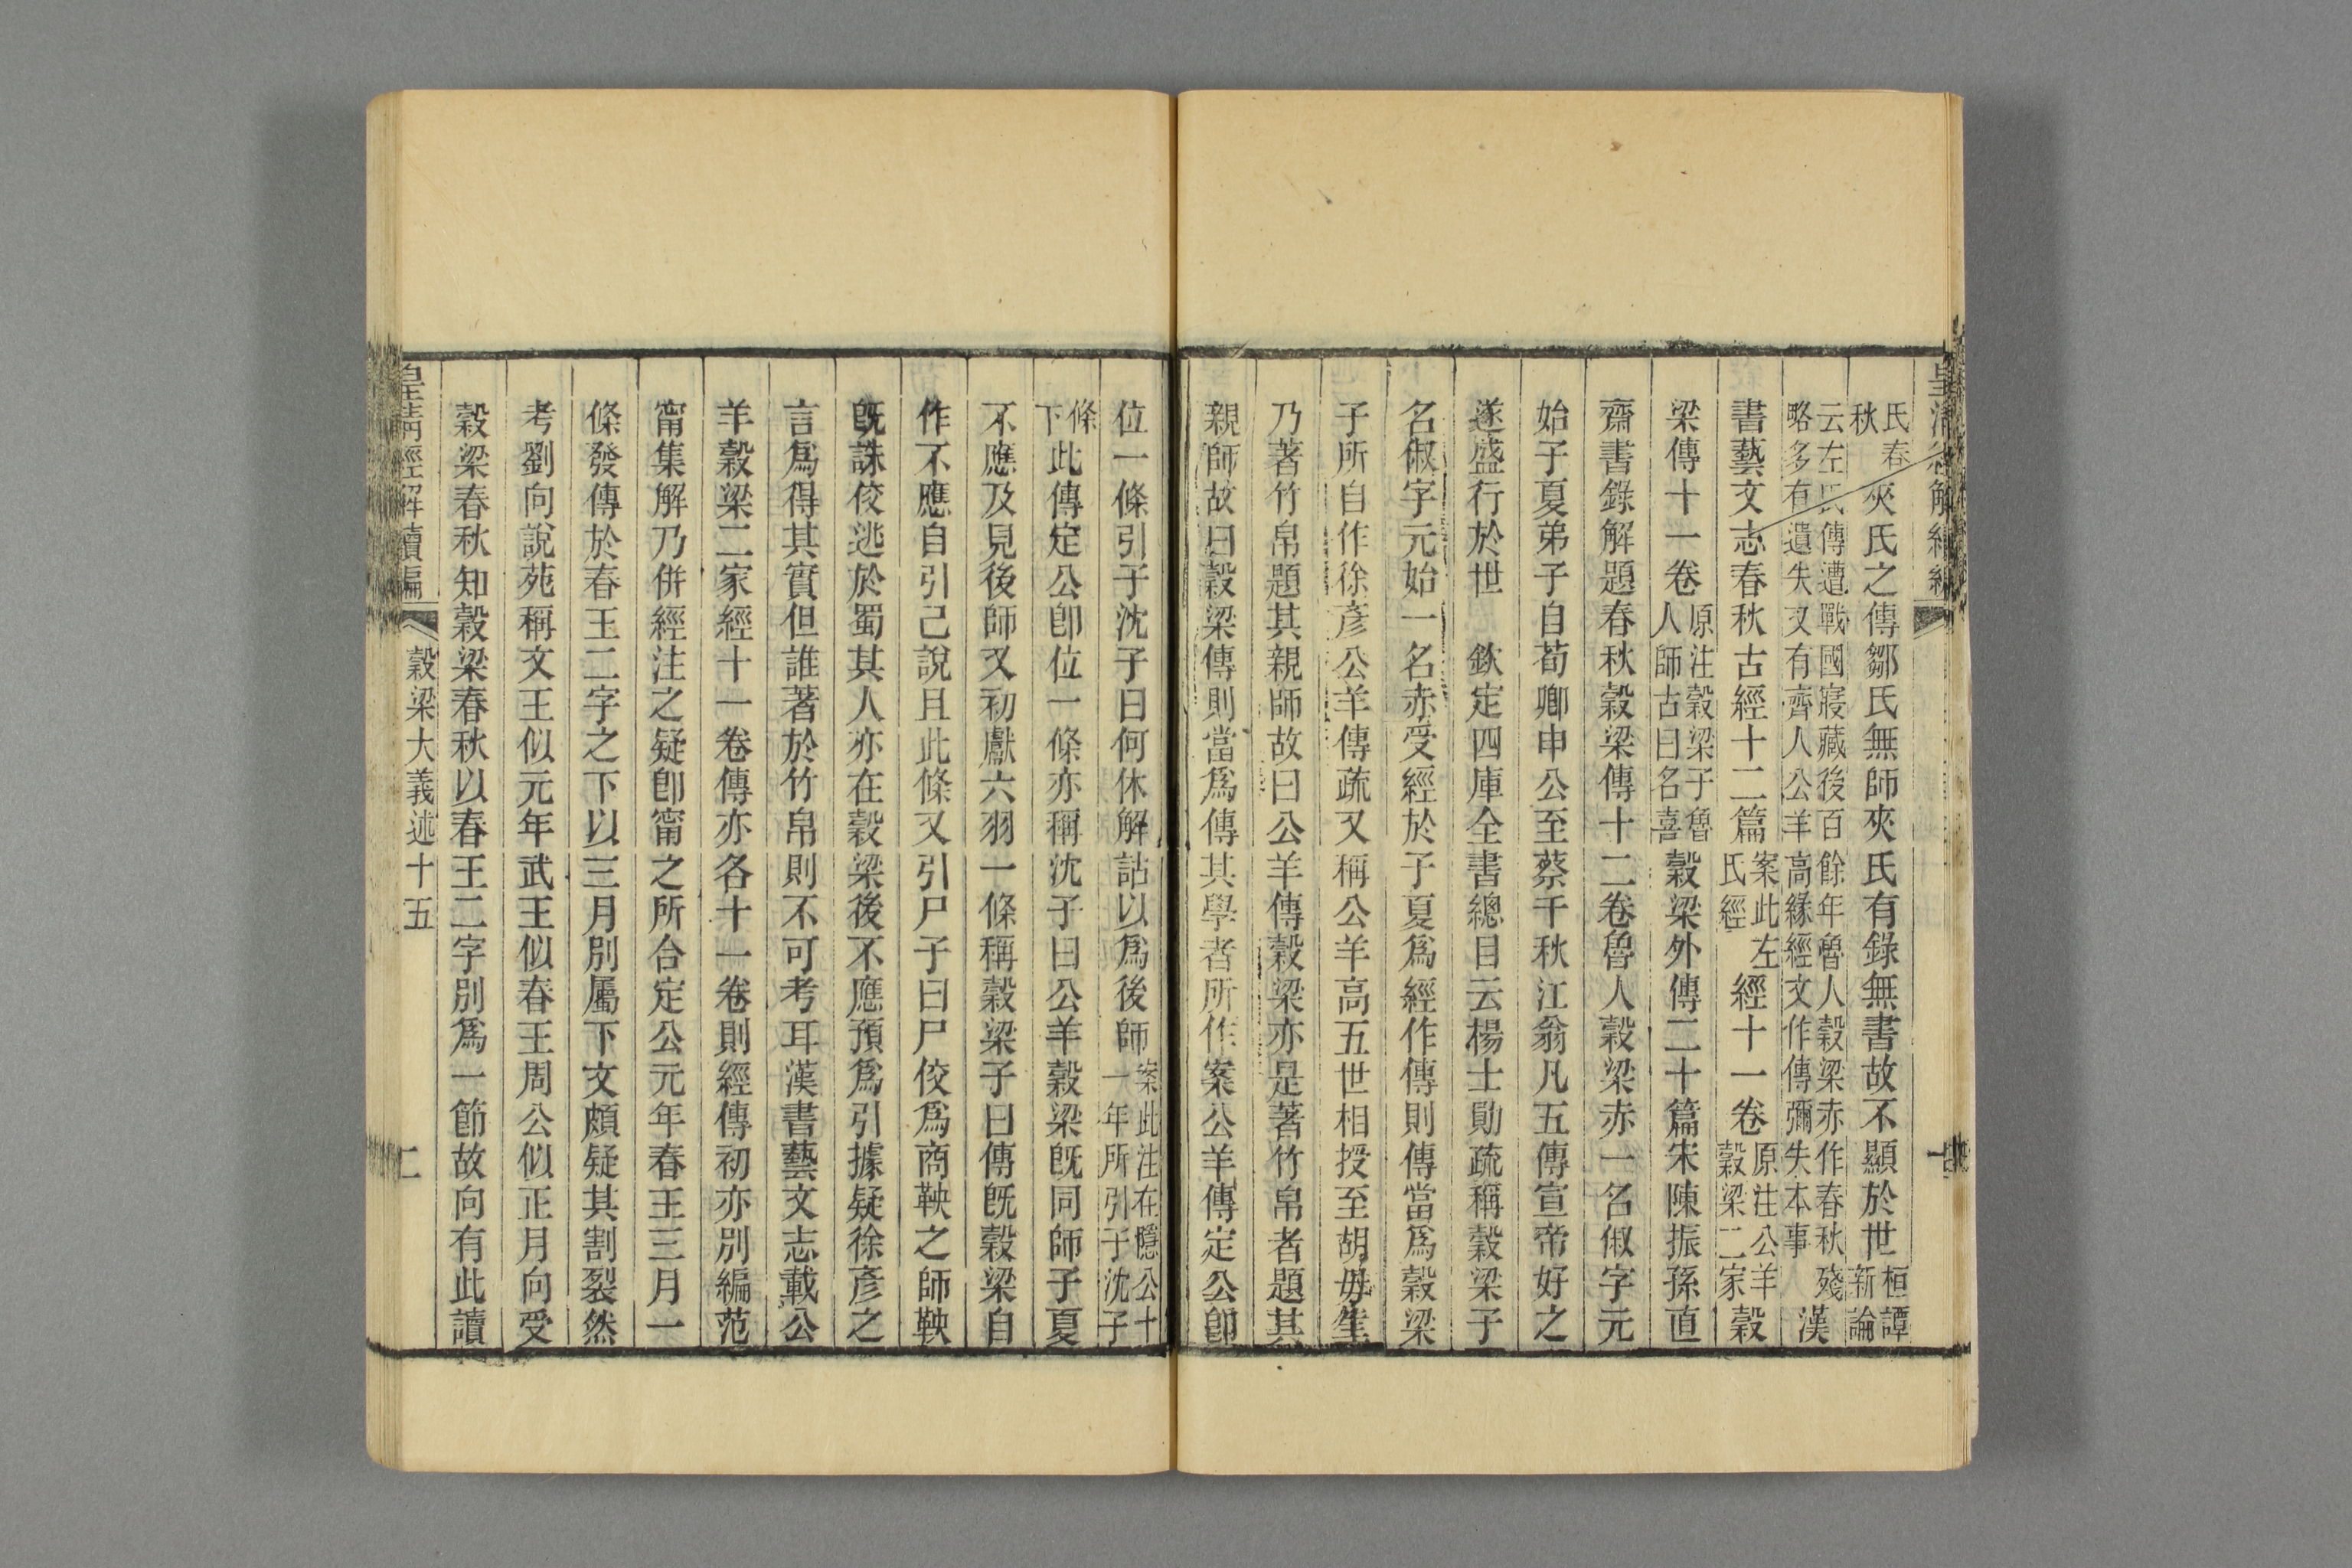 皇清經解續編
氏春秋夾氏之傳鄒氏無師夾氏有錄無書故不顯於世桓譚新論
云左氏傳遭戰國寖藏後百餘年魯人穀梁赤作春秋殘略多有遺失又有齊人公羊高緣經文作傳彌失本事漢
書藝文志春秋古經十二篇案此左氏經經十一卷原注公羊穀梁二家穀
梁傳十一卷原注穀梁子魯人師古曰名喜穀梁外傳二十篇宋陳振孫直
齋書錄解題春秋穀梁傳十二卷魯人穀梁赤一名俶字元
始子夏弟子自荀卿申公至蔡千秋江翁凡五傳宣帝好之
遂盛行於世　欽定四庫全書總目云楊士勛疏稱穀梁子
名俶字元始一名赤受經於子夏爲經作傳則傳當爲穀梁
子所自作徐彥公羊傳疏又稱公羊高五世相授至胡毋生
乃著竹帛題其親師故曰公羊傳穀梁亦是著竹帛者題其
親師故曰穀梁傳則當爲傳其學者所作案公羊傳定公卽
位一條引子沈子曰何休解詁以爲後師案此注在隱公十一年所引子沈子
條下此傳定公卽位一條亦稱沈子曰公羊穀梁旣同師子夏
不應及見後師又初獻六羽一條稱穀梁子曰傳旣穀梁自
作不應自引己說且此條又引尸子曰尸佼爲商鞅之師鞅
旣誅佼逃於蜀其人亦在穀梁後不應預爲引據疑徐彥之
言爲得其實但誰著於竹帛則不可考耳漢書藝文志載公
羊穀梁二家經十一卷傳亦各十一卷則經傳初亦別編范
甯集解乃併經注之疑卽甯之所合定公元年春王三月一
條發傳於春王二字之下以三月別屬下文頗疑其割裂然
考劉向說苑稱文王似元年武王似春王周公似正月向受
穀梁春秋知穀梁春秋以春王二字別爲一節故向有此讀
皇淸經解續編　穀梁大義述十五　二